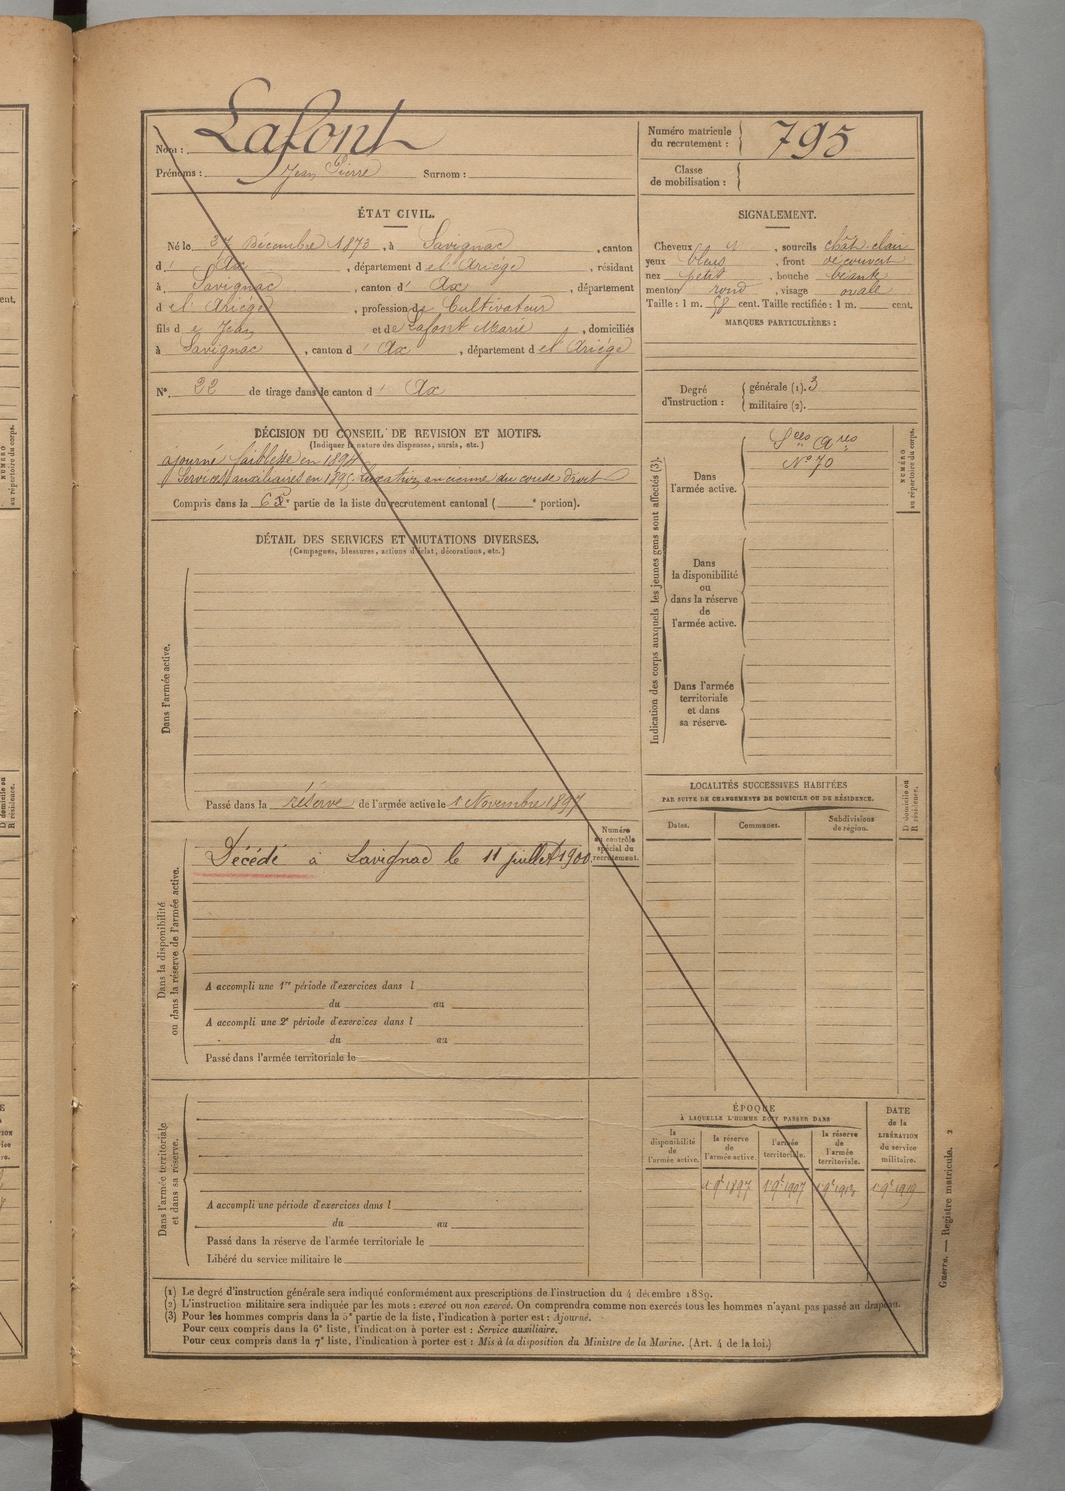 Nom : Lafont
Prénoms : Jean Pierre Surnom :
Numéro matricule du recrutement : 795
Classe de mobilisation :
ÉTAT CIVIL.
Né le 27 Décembre 1873, à Savignac, canton
d' Ax, département de l'Ariége, résidant
à Savignac, canton d' Ax, département
de l'Ariége, profession de Cultivateur
fils de Jean et de Lafont Marie, domiciliés
à Savignac, canton d' Ax, département de l'Ariége
N° 22 de tirage dans le canton d' Ax
SIGNALEMENT.
Cheveux, sourcils chât. clair
yeux bleus, front découvert
nez petit, bouche béante
menton rond, visage ovale
Taille : 1 m. 58 cent. Taille rectifiée : 1 m. cent.
MARQUES PARTICULIÈRES :
Degré d'instruction : générale (1). 3
militaire (2).
DÉCISION DU CONSEIL DE REVISION ET MOTIFS.
(Indiquer la nature des dispenses, sursis, etc.)
ajourné faiblesse en 1894
Services auxiliaires en 1895. Luxation ancienne du coude droit
Compris dans la 6e partie de la liste du recrutement cantonal ( e portion).
DÉTAIL DES SERVICES ET MUTATIONS DIVERSES.
(Campagnes, blessures, actions d'éclat, décorations, etc.)
Dans l'armée active.
Passé dans la réserve de l'armée active le 1 Novembre 1897
Numéro au contrôle spécial du recrutement.
Dans la disponibilité ou dans la réserve de l'armée active.
Décédé à Savignac le 11 juillet 1900
A accompli une 1re période d'exercices dans l
du au
A accompli une 2e période d'exercices dans l
du au
Passé dans l'armée territoriale le
Dans l'armée territoriale et dans sa réserve.
A accompli une période d'exercices dans l
du au
Passé dans la réserve de l'armée territoriale le
Libéré du service militaire le
Indication des corps auxquels les jeunes gens sont affectés (3).
NUMÉRO au répertoire du corps.
Dans l'armée active.
Sces Ares
N° 70
Dans la disponibilité ou dans la réserve de l'armée active.
Dans l'armée territoriale et dans sa réserve.
LOCALITÉS SUCCESSIVES HABITÉES
PAR SUITE DE CHANGEMENTS DE DOMICILE OU DE RÉSIDENCE.
Dates. Communes. Subdivisions de région. D. domicile ou R. résidence.
ÉPOQUE
À LAQUELLE L'HOMME DOIT PASSER DANS
DATE de la LIBÉRATION du service militaire.
la disponibilité de l'armée active. la réserve de l'armée active. l'armée territoriale. la réserve de l'armée territoriale.
1 9e 1897 1 9e 1907 1 9e 1913 1 9e 1919
(1) Le degré d'instruction générale sera indiqué conformément aux prescriptions de l'instruction du 4 décembre 1889.
(2) L'instruction militaire sera indiquée par les mots : exercé ou non exercé. On comprendra comme non exercés tous les hommes n'ayant pas passé au drapeau.
(3) Pour les hommes compris dans la 5e partie de la liste, l'indication à porter est : Ajourné.
Pour ceux compris dans la 6e liste, l'indication à porter est : Service auxiliaire.
Pour ceux compris dans la 7e liste, l'indication à porter est : Mis à la disposition du Ministre de la Marine. (Art. 4 de la loi.)
Guerre. — Registre matricule. 2